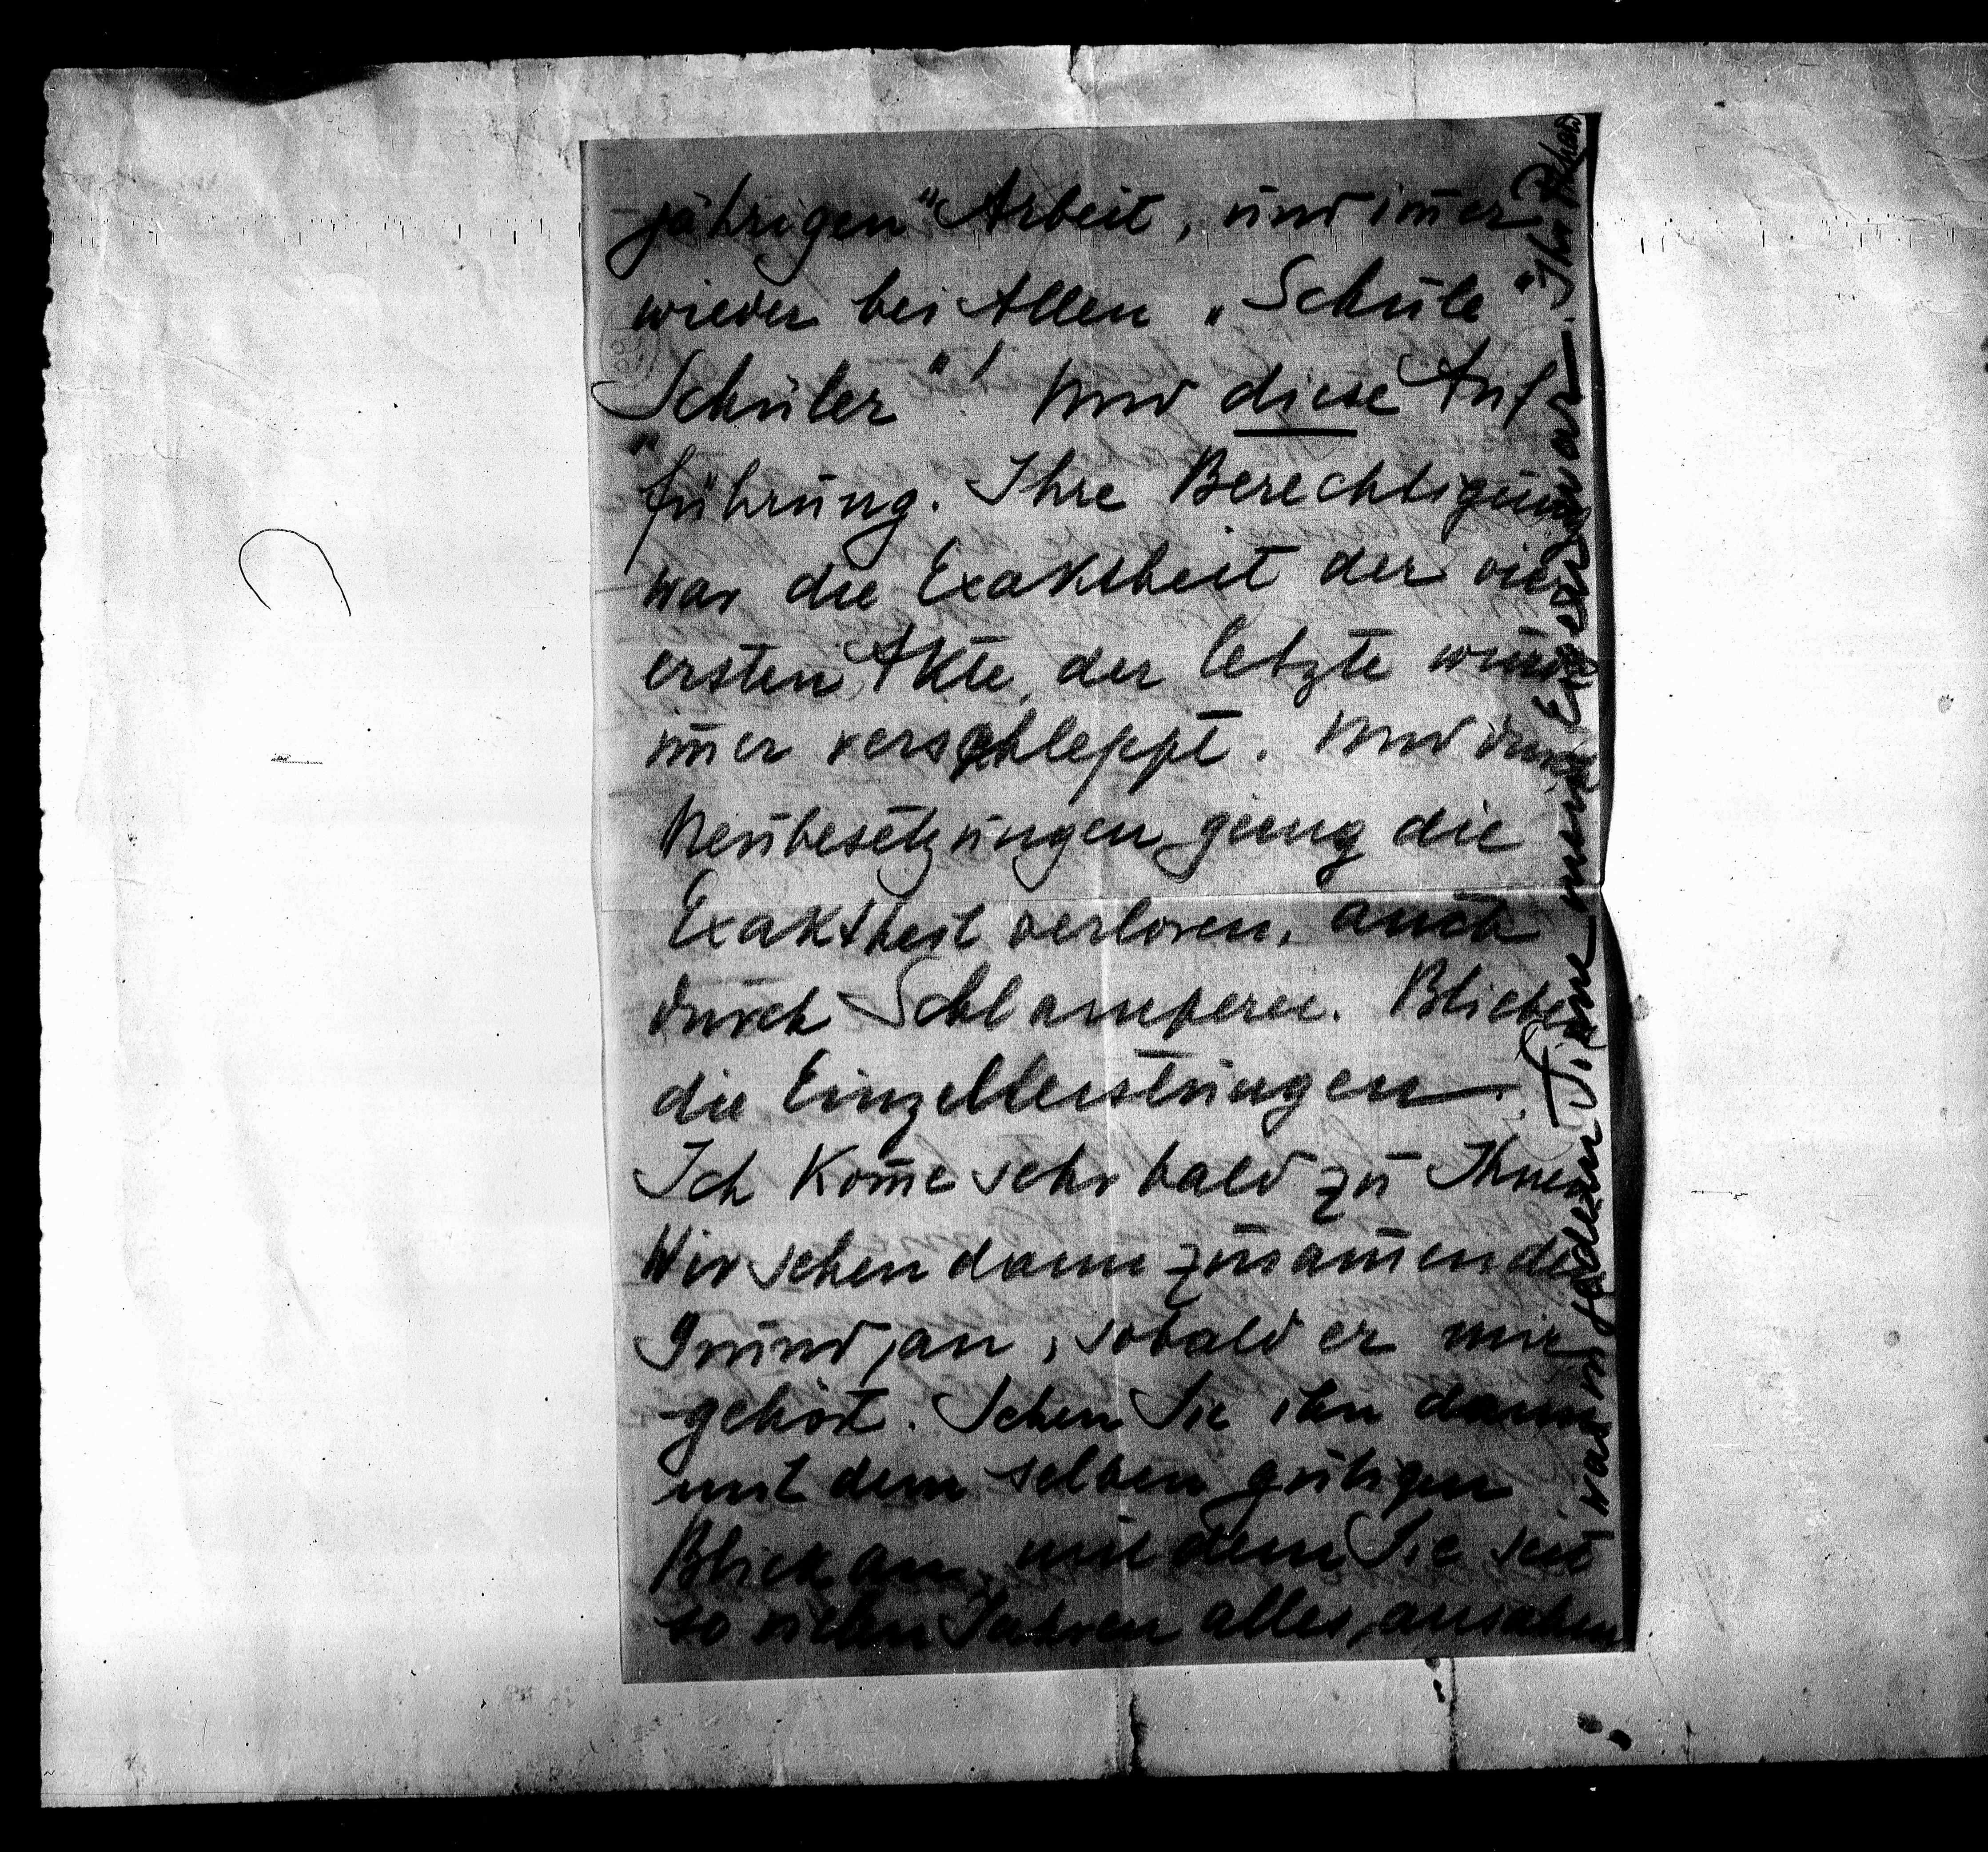 jährigen" Arbeit, und im̄er
wieder bei Allen „Schule"
„Schüler"! Und diese Auf-
führung. Ihre Berechtigung
war die Exaktheit der vier
ersten Akte, der letzte wurde
im̄er verschleppt. Und durch
Neubesetzungen ging die
Exaktheit verloren, auch
durch Schlamperei. Blieben
die Einzelleistungen.
Ich kom̄e sehr bald zu Ihnen
Wir sehen dann zusam̄en den
Grund an, sobald er mir
gehört. Sehen Sie ihn dann
mit dem selben gütigen
Blick an, mit dem Sie seit
so vielen Jahren alles ansahen
was in jedem Sinne mein Eigen war. Ihr